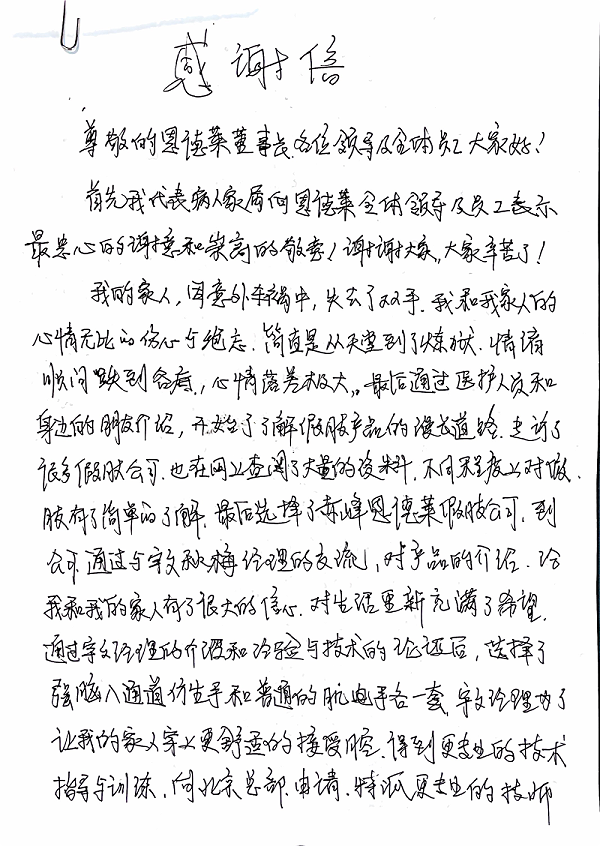 感谢信
尊敬的恩德莱董事长、各位领导及全体员工大家好！
首先我代表病人家属向恩德莱全体领导及员工表示
最忠心的谢意和崇高的敬意！谢谢大家，大家辛苦了！
我的家人，因意外车祸中，失去了双手，我和我家人的
心情无比的伤心与绝忘，简直是从天堂到了炼狱，情绪
瞬间跌到谷底，心情落差极大，最后通过医护人员和
身边的朋友介绍，开始了了解假肢产品的漫长道路，走访了
很多假肢公司，也在网上查阅了大量的资料，不同程度上对假
肢有了简单的了解，最后选择了赤峰恩德莱假肢公司，到
公司通过与宇文秋梅经理的交流，对产品的介绍，给
我和我的家人有了很大的信心，对生活重新充满了希望，
通过宇文经理的介绍和经验与技术的论证后，选择了
强脑八通道仿生手和普通的肌电手各一套，宇文经理为了
让我的家人穿上更舒适的接受腔，得到更专业的技术
指导与训练，向北京总部申请，特派更专业的技师